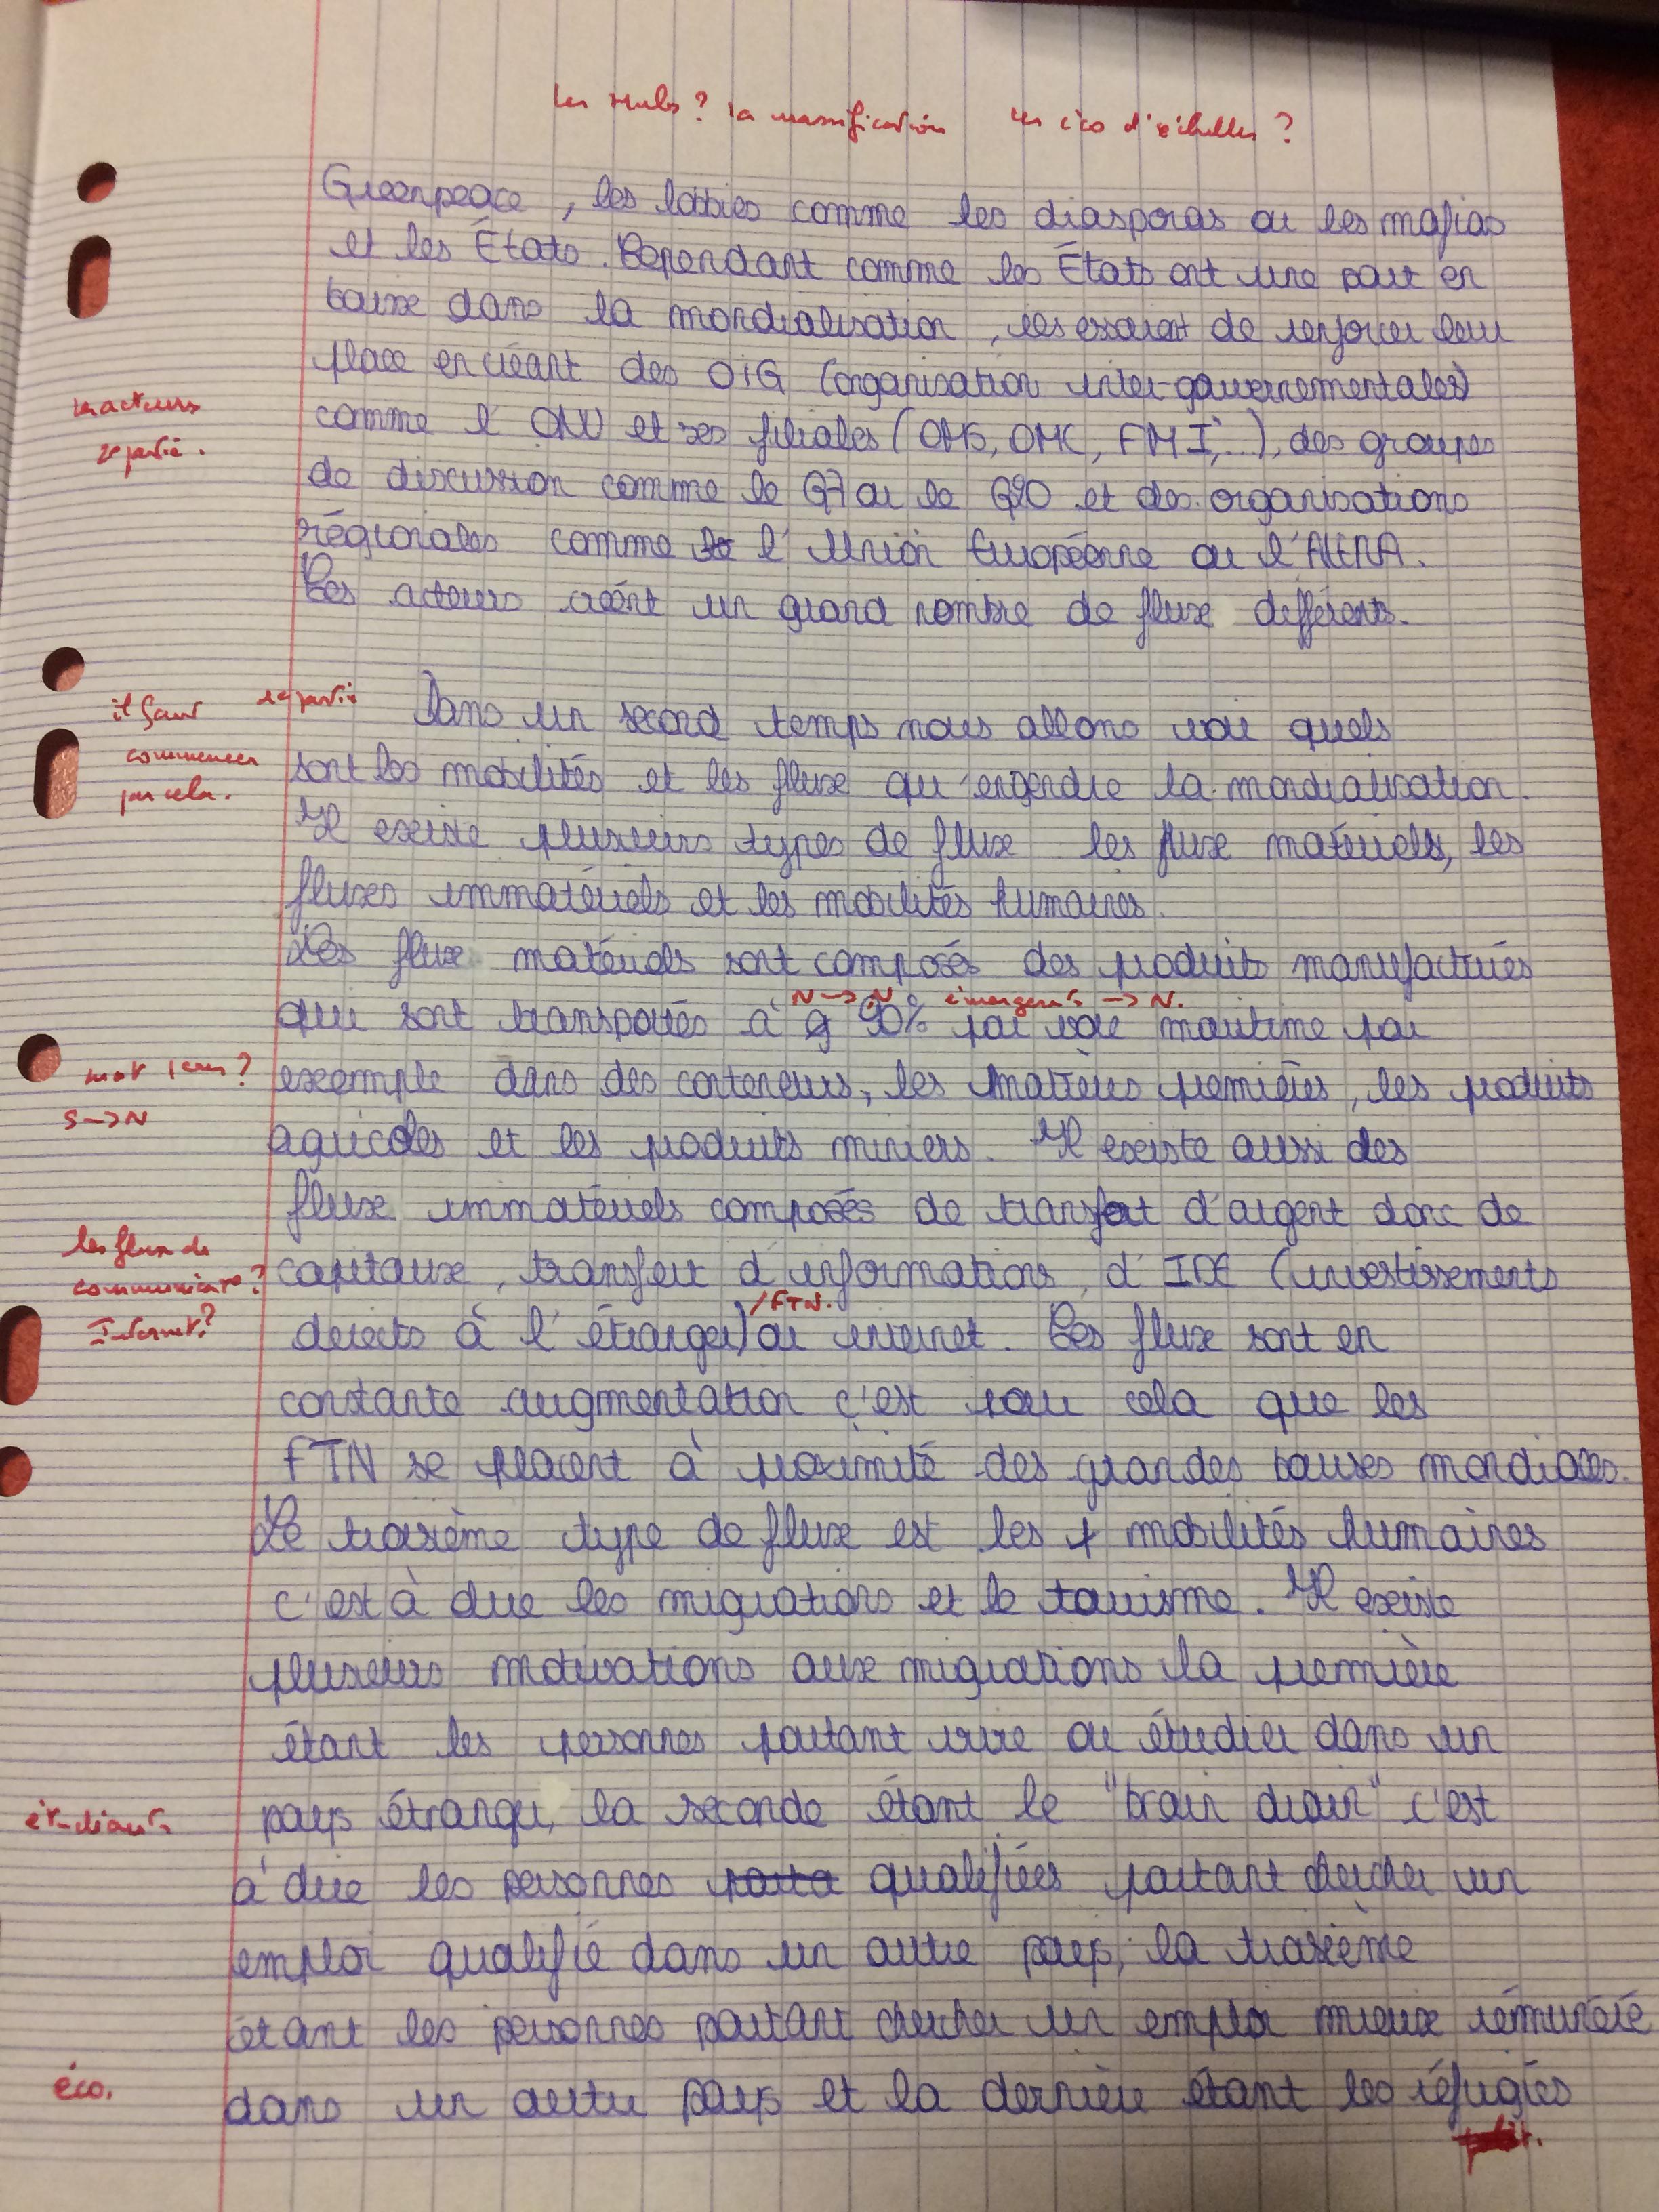 les Hubs ? la massification les éco d'échelles ?
Greenpeace, les lobbies comme les diasporas ou les mafias
et les États. Cependant comme les États ont une part en
baisse dans la mondialisation, ils essaient de renforcer leur
place en créant des OIG (organisation inter-gouvernementales)
les acteurs
comme l'ONU et ses filiales (OMS, OMC, FMI, ...), des groupes
2e partie.
de discussion comme le G7 ou le G20 et des organisations
régionales comme l'Union Européenne ou l'ALENA.
Ces acteurs créent un grand nombre de flux différents.
il faut
commencer
par cela.
1e partie
Dans un second temps nous allons voir quels
sont les mobilités et les flux qu'engendre la mondialisation.
Il existe plusieurs types de flux les flux matériels, les
fluxes immatériels et les mobilités humaines.
Les flux matériels sont composés des produits manufacturés
N → N émergents → N.
qui sont transportés à 90% par voie maritime par
mat 1ères ?
S → N
exemple dans des conteneurs, les matières premières, les produits
agricoles et les produits miniers. Il existe aussi des
flux immatériels composés de transfert d'argent donc de
les flux de
communicat° ?
Internet ?
capitaux, transfert d'informations, d'IDE (investissements
/ FTN.
directs à l'étranger) ou internet. Ces flux sont en
constante augmentation c'est pour cela que les
FTN se placent à proximité des grandes bourses mondiales.
Le troisième type de flux est les mobilités humaines
c'est à dire les migrations et le tourisme. Il existe
plusieurs motivations aux migrations la première
étant les personnes partant vivre ou étudier dans un
étudiants
pays étranger, la seconde étant le "brain drain" c'est
à dire les personnes qualifiées partant chercher un
emploi qualifié dans un autre pays, la troisième
étant les personnes partant chercher un emploi mieux rémunéré
éco.
dans un autre pays et la dernière étant les réfugiés